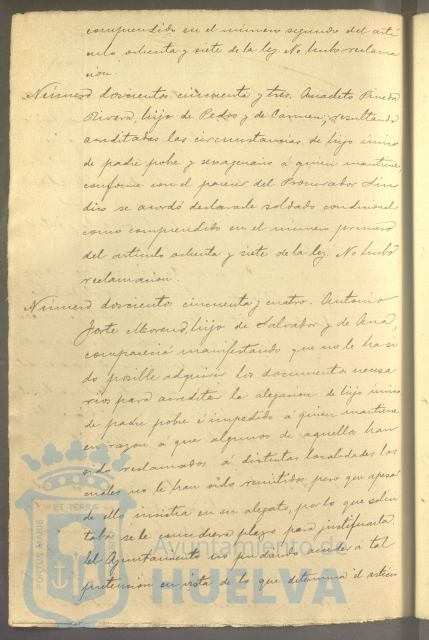 comprendido en el número segundo del artí
culo ochenta y siete de la ley. No hubo reclama
cion.
Número doscientos cincuenta y tres. Anacleto Pineda
Rivera, hijo de Pedro y de Carmen; resultando
acreditadas las circunstancias de hijo único
de padre pobre y sexagenario á quien mantiene,
conforme con el parecer del Procurador Sín
dico se acordó declararle soldado condicional
como comprendido en el número primero
del artículo ochenta y siete de la ley. No hubo
reclamacion.
Número doscientos cincuenta y cuatro. Antonio
Moreno, hijo de Salvador y de Ana,
compareció manifestando que no le ha si
do posible adquirir los documentos necesa
rios para acreditar la alegacion de hijo único
de padre pobre é impedido á quien mantiene
en razon á que algunos de aquellos han
sido reclamados á distintas localidades los
cuales no le han sido remitidos, pero que apesar
de ello insistia en su alegato, por lo que solici
taba se le concediera plazo para justificarla.
El Ayuntamiento no pudiendo acceder á tal
pretension en vista de lo que determina el artícu
PORTUS MARIS
ET TERRAE
Ayuntamiento de
HUELVA